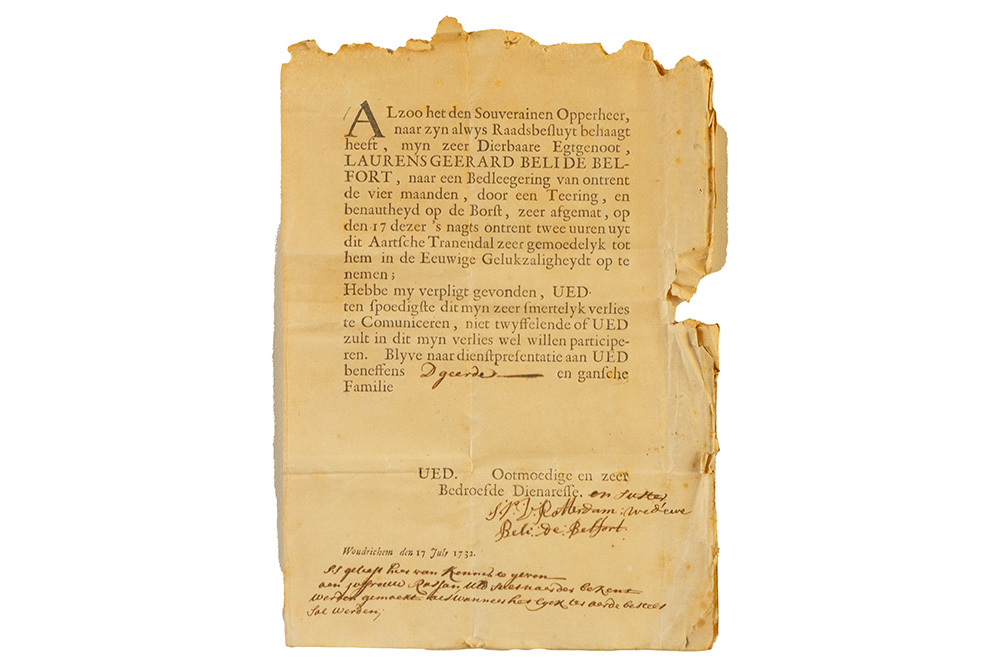 ALzoo het den Souverainen Opperheer,
naar zyn alwys Raadsbesluyt behaagt
heeft, myn zeer Dierbaare Egtgenoot,
LAURENS GEERARD BELI DE BEL-
FORT, naar een Bedleegering van ontrent
de vier maanden, door een Teering, en
benautheyd op de Borſt, zeer afgemat, op
den 17 dezer 's nagts ontrent twee uuren uyt
dit Aartſche Tranendal zeer gemoedelyk tot
hem in de Eeuwige Gelukzaligheydt op te
nemen;
Hebbe my verpligt gevonden, UED.
ten ſpoedigſte dit myn zeer ſmertelyk verlies
te Comuniceren, niet twyffelende of UED
zult in dit myn verlies wel willen participe-
ren. Blyve naar dienſtpreſentatie aan UED
beneffens Dgeerde en ganſche
Familie
UED. Ootmoedige en zeer
Bedroefde Dienareſſe. en Suster
Rotterdam: Weduwe
Beli: de: Belfort.
Woudrichem den 17 July 1732.
gelieft hier van Kennis te geven
aen Juffrouw UEd sal naarder bekent
werden gemaekt als wanneer het Lyck ter aerde bestelt
Sal werden;